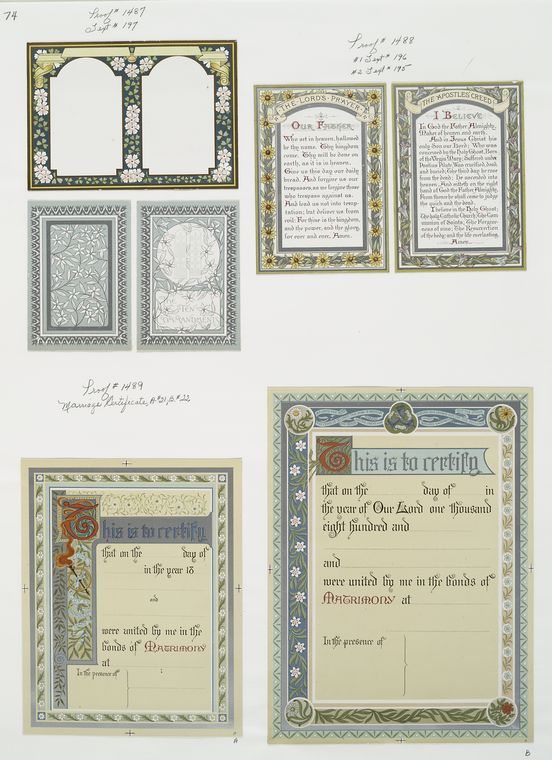 74
Proof # 1487
Text # 197
Proof # 1488
#1 Text # 196
#2 Text # 195
THE LORD'S PRAYER
OUR FATHER
Who art in heaven, hallowed
be thy name. Thy kingdom
come. Thy will be done on
earth, as it is in heaven.
Give us this day our daily
bread. And forgive us our
trespasses, as we forgive those
who trespass against us.
And lead us not into temp-
tation; but deliver us from
evil: For thine is the kingdom,
and the power, and the glory,
for ever and ever. Amen.
THE APOSTLES' CREED
I BELIEVE
In God the Father Almighty,
Maker of heaven and earth.
And in Jesus Christ his
only Son our Lord; Who was
conceived by the Holy Ghost, Born
of the Virgin Mary; Suffered under
Pontius Pilate, Was crucified, dead,
and buried; the third day he rose
from the dead; He ascended into
heaven, And sitteth on the right
hand of God the Father Almighty,
From thence he shall come to judge
the quick and the dead.
I believe in the Holy Ghost;
The holy Catholic Church; The Com-
munion of Saints; The Forgive-
ness of sins; The Resurrection
of the body; and the life everlasting.
Amen.
TEN
COMMANDMENTS
Proof # 1489
Marriage Certificate, A.#21, B.#22
This is to certify
that on the day of
in the year 18
and
were united by me in the
bonds of MATRIMONY
at
In the presence of
A
This is to certify
that on the day of in
the year of Our Lord one thousand
eight hundred and
and
were united by me in the bonds of
MATRIMONY at
In the presence of
B